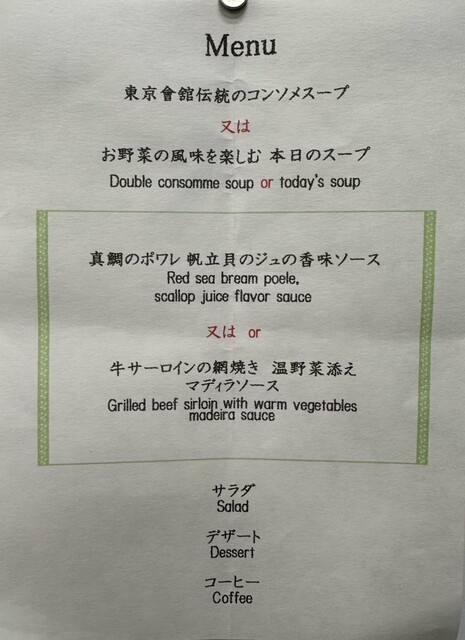 Menu
東京會舘伝統のコンソメスープ
又は
お野菜の風味を楽しむ 本日のスープ
Double consomme soup or today's soup
真鯛のポワレ 帆立貝のジュの香味ソース
Red sea bream poele,
scallop juice flavor sauce
又は or
牛サーロインの網焼き 温野菜添え
マディラソース
Grilled beef sirloin with warm vegetables
madeira sauce
サラダ
Salad
デザート
Dessert
コーヒー
Coffee